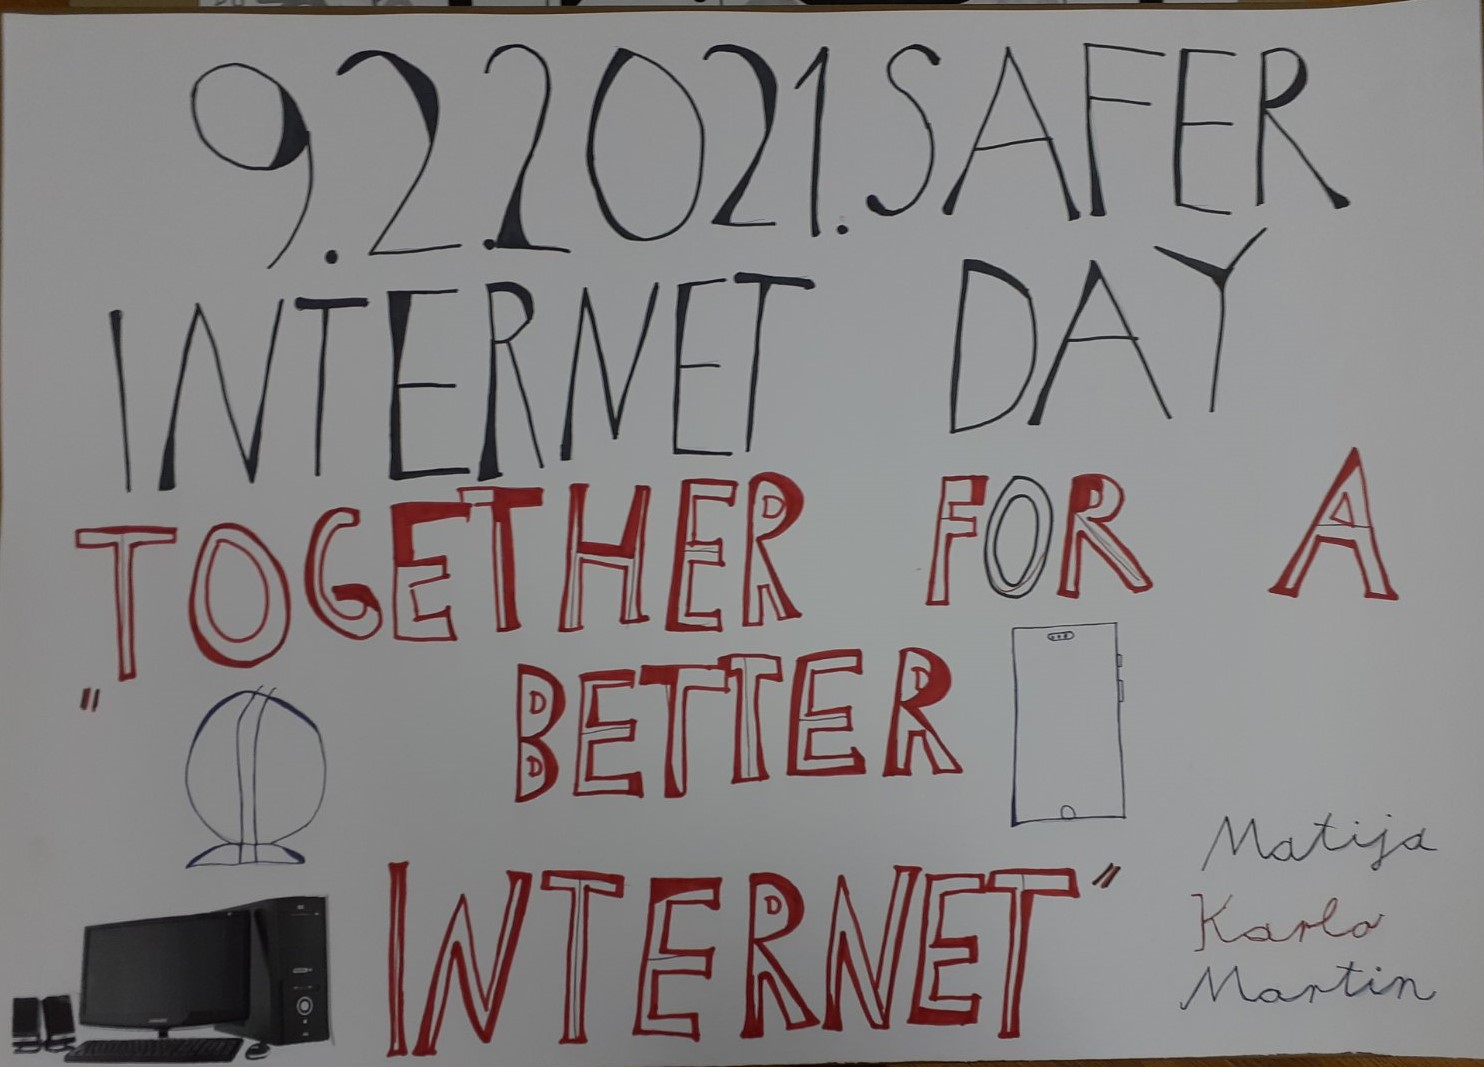 9.2.2021. SAFER
INTERNET DAY
TOGETHER FOR A
" BETTER
INTERNET"
Matija
Karlo
Martin